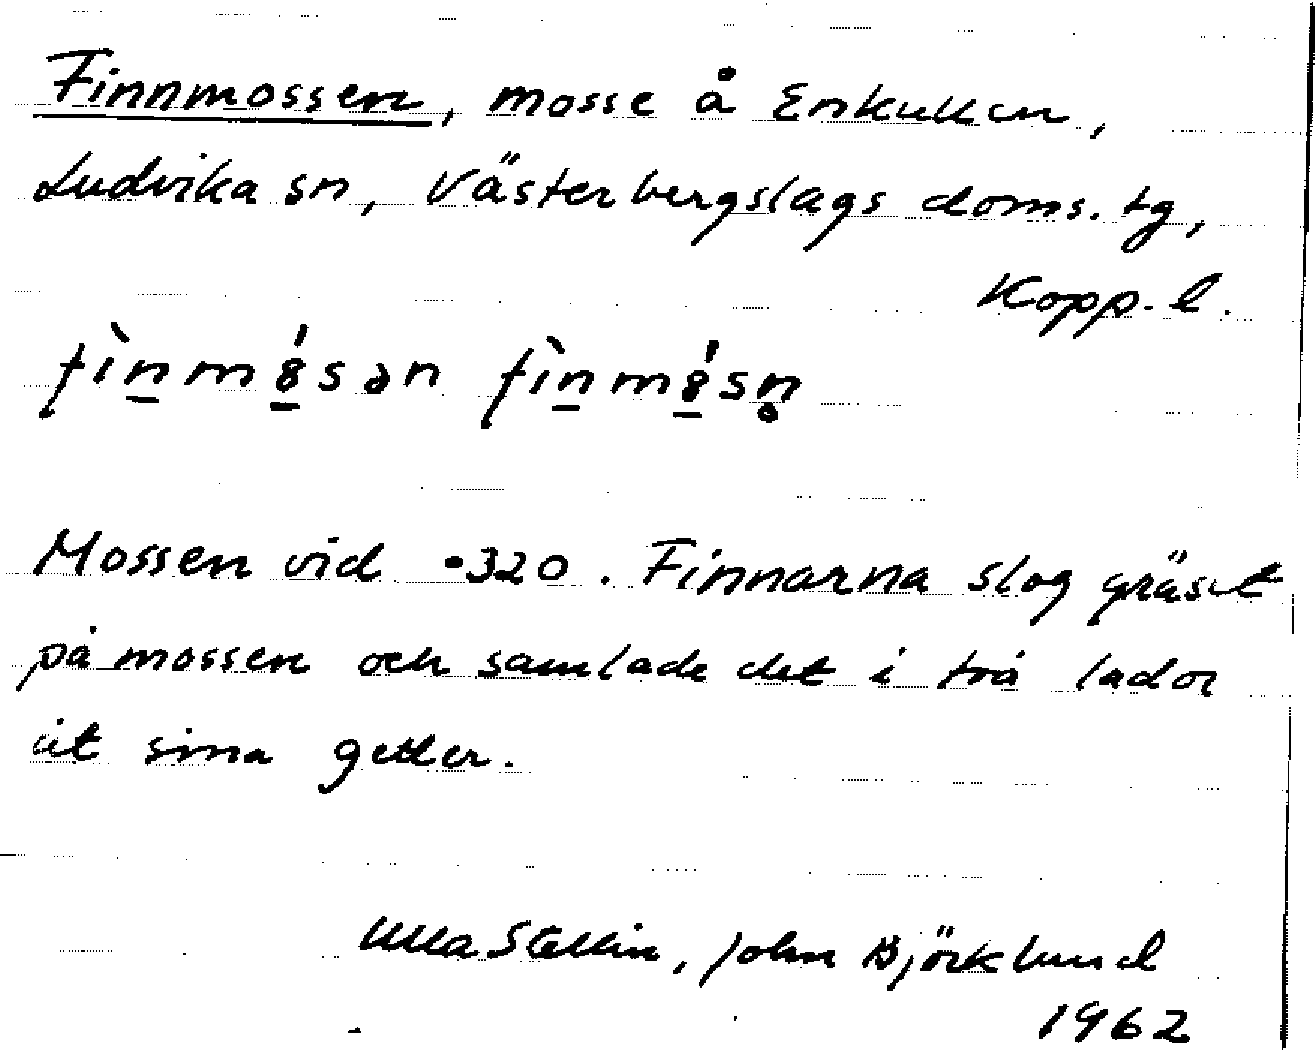 Finnmossen, mosse å Enkullen,
Ludvika sn, Västerbergslags doms. tg,
Kopp. l.
fìnm8́sən fìnm8́sn̥
Mossen vid •320. Finnarna slog gräset
på mossen och samlade det i två lador
åt sina getter.
Ulla Stellin, John Björklund
1962